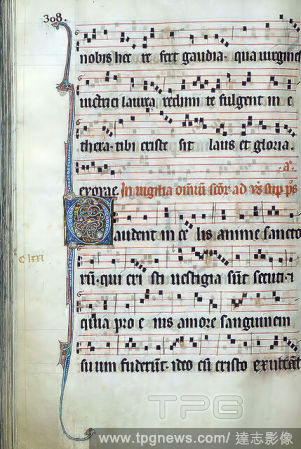 308.
nobis hec re fert gaudia. qua virgine
inclita laurea. redimi te fulgent in e
thera. tibi criste sit laus et gloria.
exorae. In vigilia omniū scōr ad vs̄ sup ps̄
Gaudent in ce lis anime sancto
rū. qui cri sti vestigia sūt secuti. et
quia pro e ius amore sanguinem
suum fuderūt. ideo cū cristo exultāt
TPG
www.tpgnews.com/ 達志影像